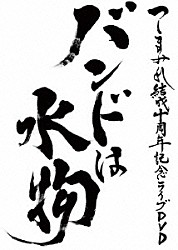 つしまみれ結成十周年記念ライブDVD
バンドは
水物